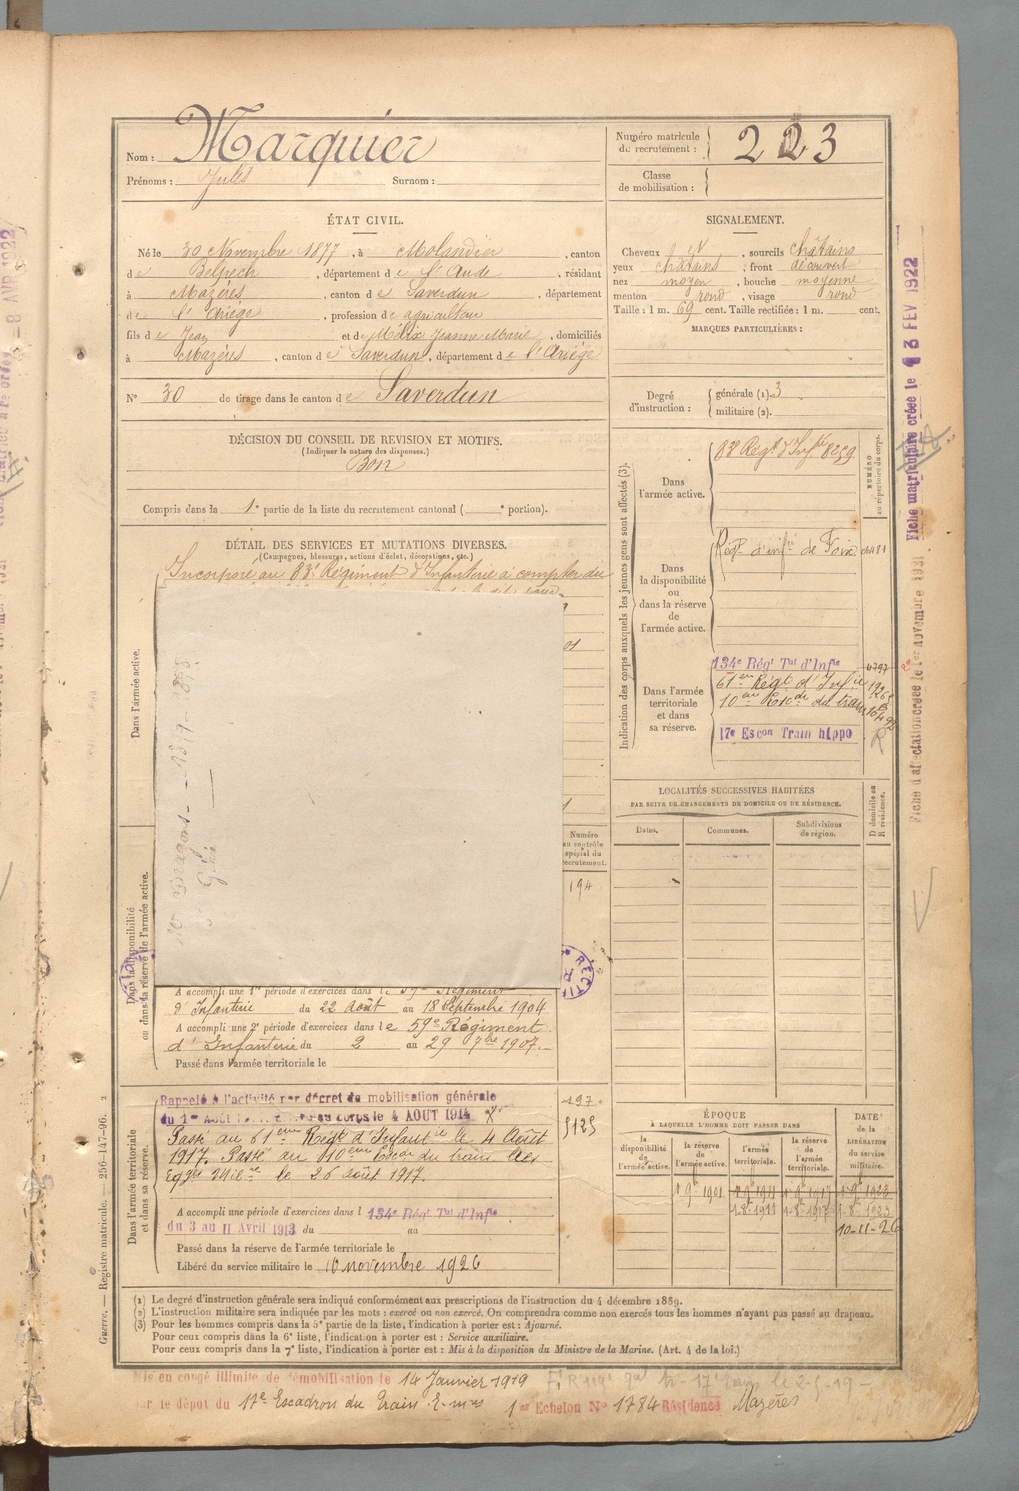 Nom : Marquier
Prénoms : Jules Surnom :
Numéro matricule
de recrutement : 223
Classe
de mobilisation :
ÉTAT CIVIL.
Né le 30 Novembre 1877, à Molandier, canton
de Belpech, département de l'Aude, résidant
à Mazères, canton de Saverdun, département
de l'Ariège, profession de agriculteur
fils de Jean et de Mélix Jeanne Marie, domiciliés
à Mazères, canton de Saverdun, département de l'Ariège
N° 30 de tirage dans le canton de Saverdun
SIGNALEMENT.
Cheveux et, sourcils châtains
yeux châtains, front découvert
nez moyen, bouche moyenne
menton rond, visage rond
Taille : 1 m. 69 cent. Taille rectifiée : 1 m. cent.
MARQUES PARTICULIÈRES :
Degré
d'instruction :
générale (1). 3
militaire (2).
DÉCISION DU CONSEIL DE REVISION ET MOTIFS.
(Indiquer la nature des dispenses.)
Bon
Compris dans la 1e partie de la liste du recrutement cantonal ( e portion).
DÉTAIL DES SERVICES ET MUTATIONS DIVERSES.
(Campagnes, blessures, actions d'éclat, décorations, etc.)
Incorporé au 83e Régiment d'Infanterie à compter du
Dans l'armée active.
Dragons 1879-893
Numéro
au contrôle
spécial du
recrutement.
194
Dans la disponibilité
ou dans la réserve de l'armée active.
A accompli une 1re période d'exercices dans le 59e Régiment
d'Infanterie du 22 août au 18 Septembre 1904
A accompli une 2e période d'exercices dans le 59e Régiment
d'Infanterie du 2 au 29 7bre 1907.
Passé dans l'armée territoriale le
Dans l'armée territoriale
et dans sa réserve.
Rappelé à l'activité par décret de mobilisation générale
du 1er Août au corps le 4 AOUT 1914
Passé au 61eme Régt d'Infantie le 4 Août
1917. Passé au 10eme Escon du train des
Eqges Milies le 26 août 1917.
197
5125
A accompli une période d'exercices dans l 134e Régt Tal d'Infie
du 3 au 11 Avril 1913 du au
Passé dans la réserve de l'armée territoriale le
Libéré du service militaire le 10 novembre 1926
Indication des corps auxquels les jeunes gens sont affectés (3).
NUMÉRO
au répertoire du corps.
Dans
l'armée active.
83e Régt d'Infie 8259
Dans
la disponibilité
ou
dans la réserve
de
l'armée active.
Régt d'infie de Foix
Dans l'armée
territoriale
et dans
sa réserve.
134e Régt Tal d'Infie 4797
61em Régt d'Infie
10em Escon du train
17e Escon Train hippo
LOCALITÉS SUCCESSIVES HABITÉES
PAR SUITE DE CHANGEMENTS DE DOMICILE OU DE RÉSIDENCE.
Dates. Communes. Subdivisions
de région.
D domicile ou
R résidence.
ÉPOQUE
À LAQUELLE L'HOMME DOIT PASSER DANS
la
disponibilité
de
l'armée active.
la réserve
de
l'armée active.
l'armée
territoriale.
la réserve
de
l'armée
territoriale.
DATE
de la
LIBÉRATION
du service
militaire.
1 9b 1901 1 9b 1911 1 9b 1917 1 9b 1923
1-8-1911 1-8-1917 1-8-1923
10-11-26
(1) Le degré d'instruction générale sera indiqué conformément aux prescriptions de l'instruction du 4 décembre 1889.
(2) L'instruction militaire sera indiquée par les mots : exercé ou non exercé. On comprendra comme non exercés tous les hommes n'ayant pas passé au drapeau.
(3) Pour les hommes compris dans la 5e partie de la liste, l'indication à porter est : Ajourné.
Pour ceux compris dans la 6e liste, l'indication à porter est : Service auxiliaire.
Pour ceux compris dans la 7e liste, l'indication à porter est : Mis à la disposition du Ministre de la Marine. (Art. 4 de la loi.)
is en congé illimité de démobilisation le 14 Janvier 1919
ar le dépôt du 17e Escadron du Train 1er Echelon N° 1784 Résidence Mazères
Guerre. — Registre matricule. — 256-147-96. 2
Fiche matriculaire créée le 13 FEV 1922
Fiche d'affectation créée le 1er novembre 1921
8 AVR 1922